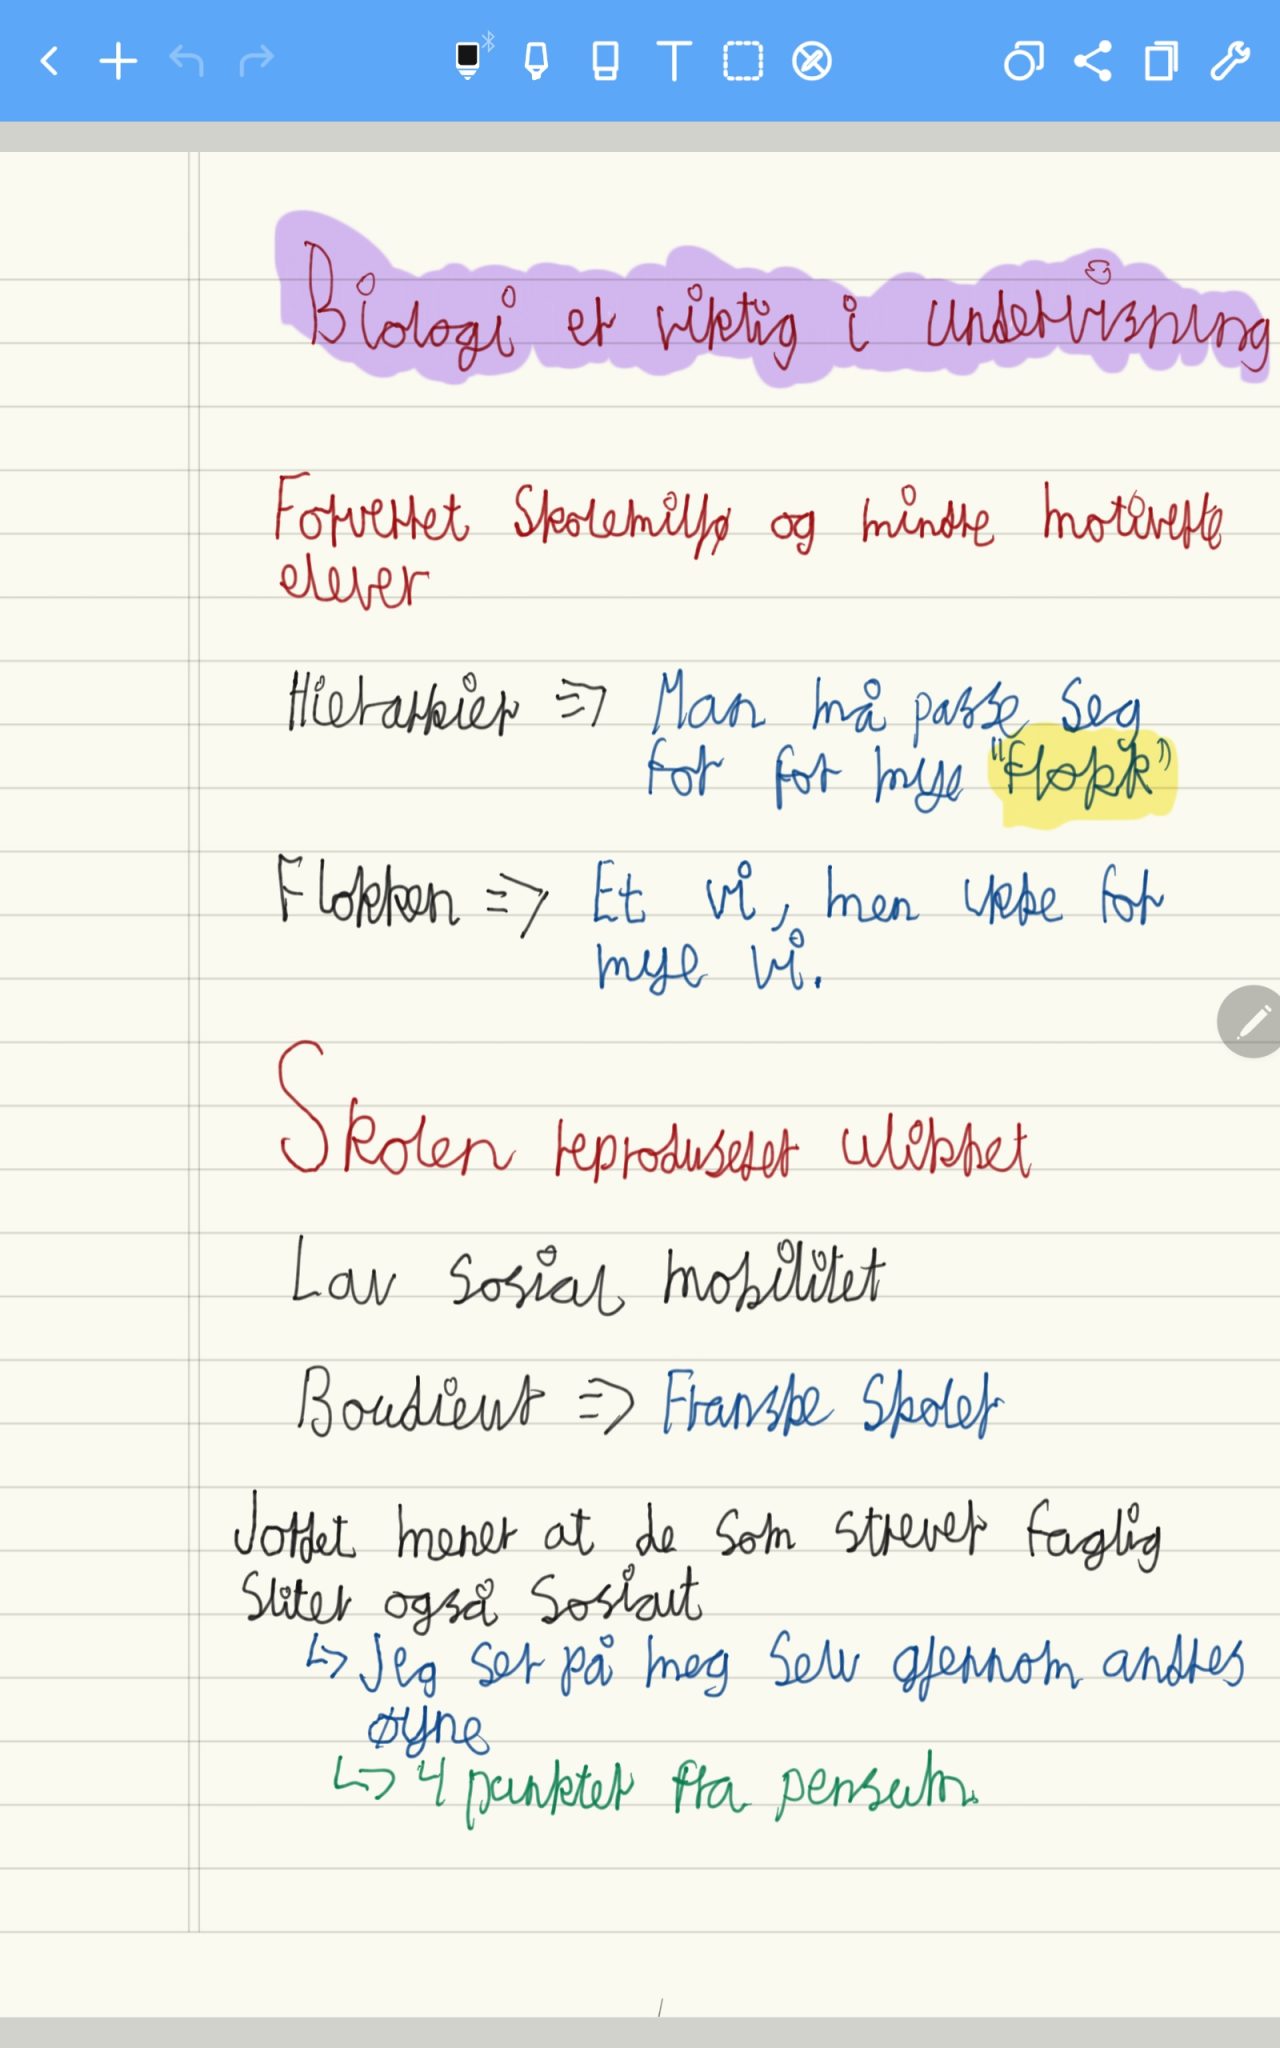 Biologi er viktig i undervisning
Forverret Skolemiljø og mindre motiverte
elever
Hierarkier => Man må passe seg
for for mye "flokk"
Flokken => Et vi, men ikke for
mye vi.
Skolen reproduserer ulikhet
Lav sosial mobilitet
Boudieur => Franske Skoler
mener at de som strever faglig
Sliter også Sosialt
↳ Jeg ser på meg Selv gjennom andres
øyne
↳ 4 punkter fra pensum.